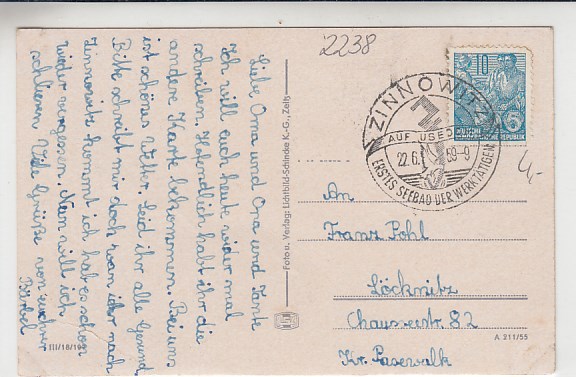 2238
Liebe Oma und Opa und Tante
Ich will euch heute wider mal
schreiben. Hofendlich habt ihr die
andere Karte bekommen. Bei uns
ist schönes Wetter. Seid ihr alle Gesund
Bitte schreibt mir doch wan ihr nach
Zinnowitz kommt ich hab es schon
wider vergessen. Nun will ich
schliesen. Viele Grüße von eurer
Bärbel
III/18/197
Foto u. Verlag: Lichtbild-Schincke K.-G., Zeitz
10
DEUTSCHE DEMOKRATISCHE REPUBLIK
ZINNOWITZ
AUF USEDOM
22.6. 59-9
ERSTES SEEBAD DER WERKTÄTIGEN
An
Franz Pohl
Löcknitz
Chausseestr. 82
Kr. Pasewalk
A 211/55